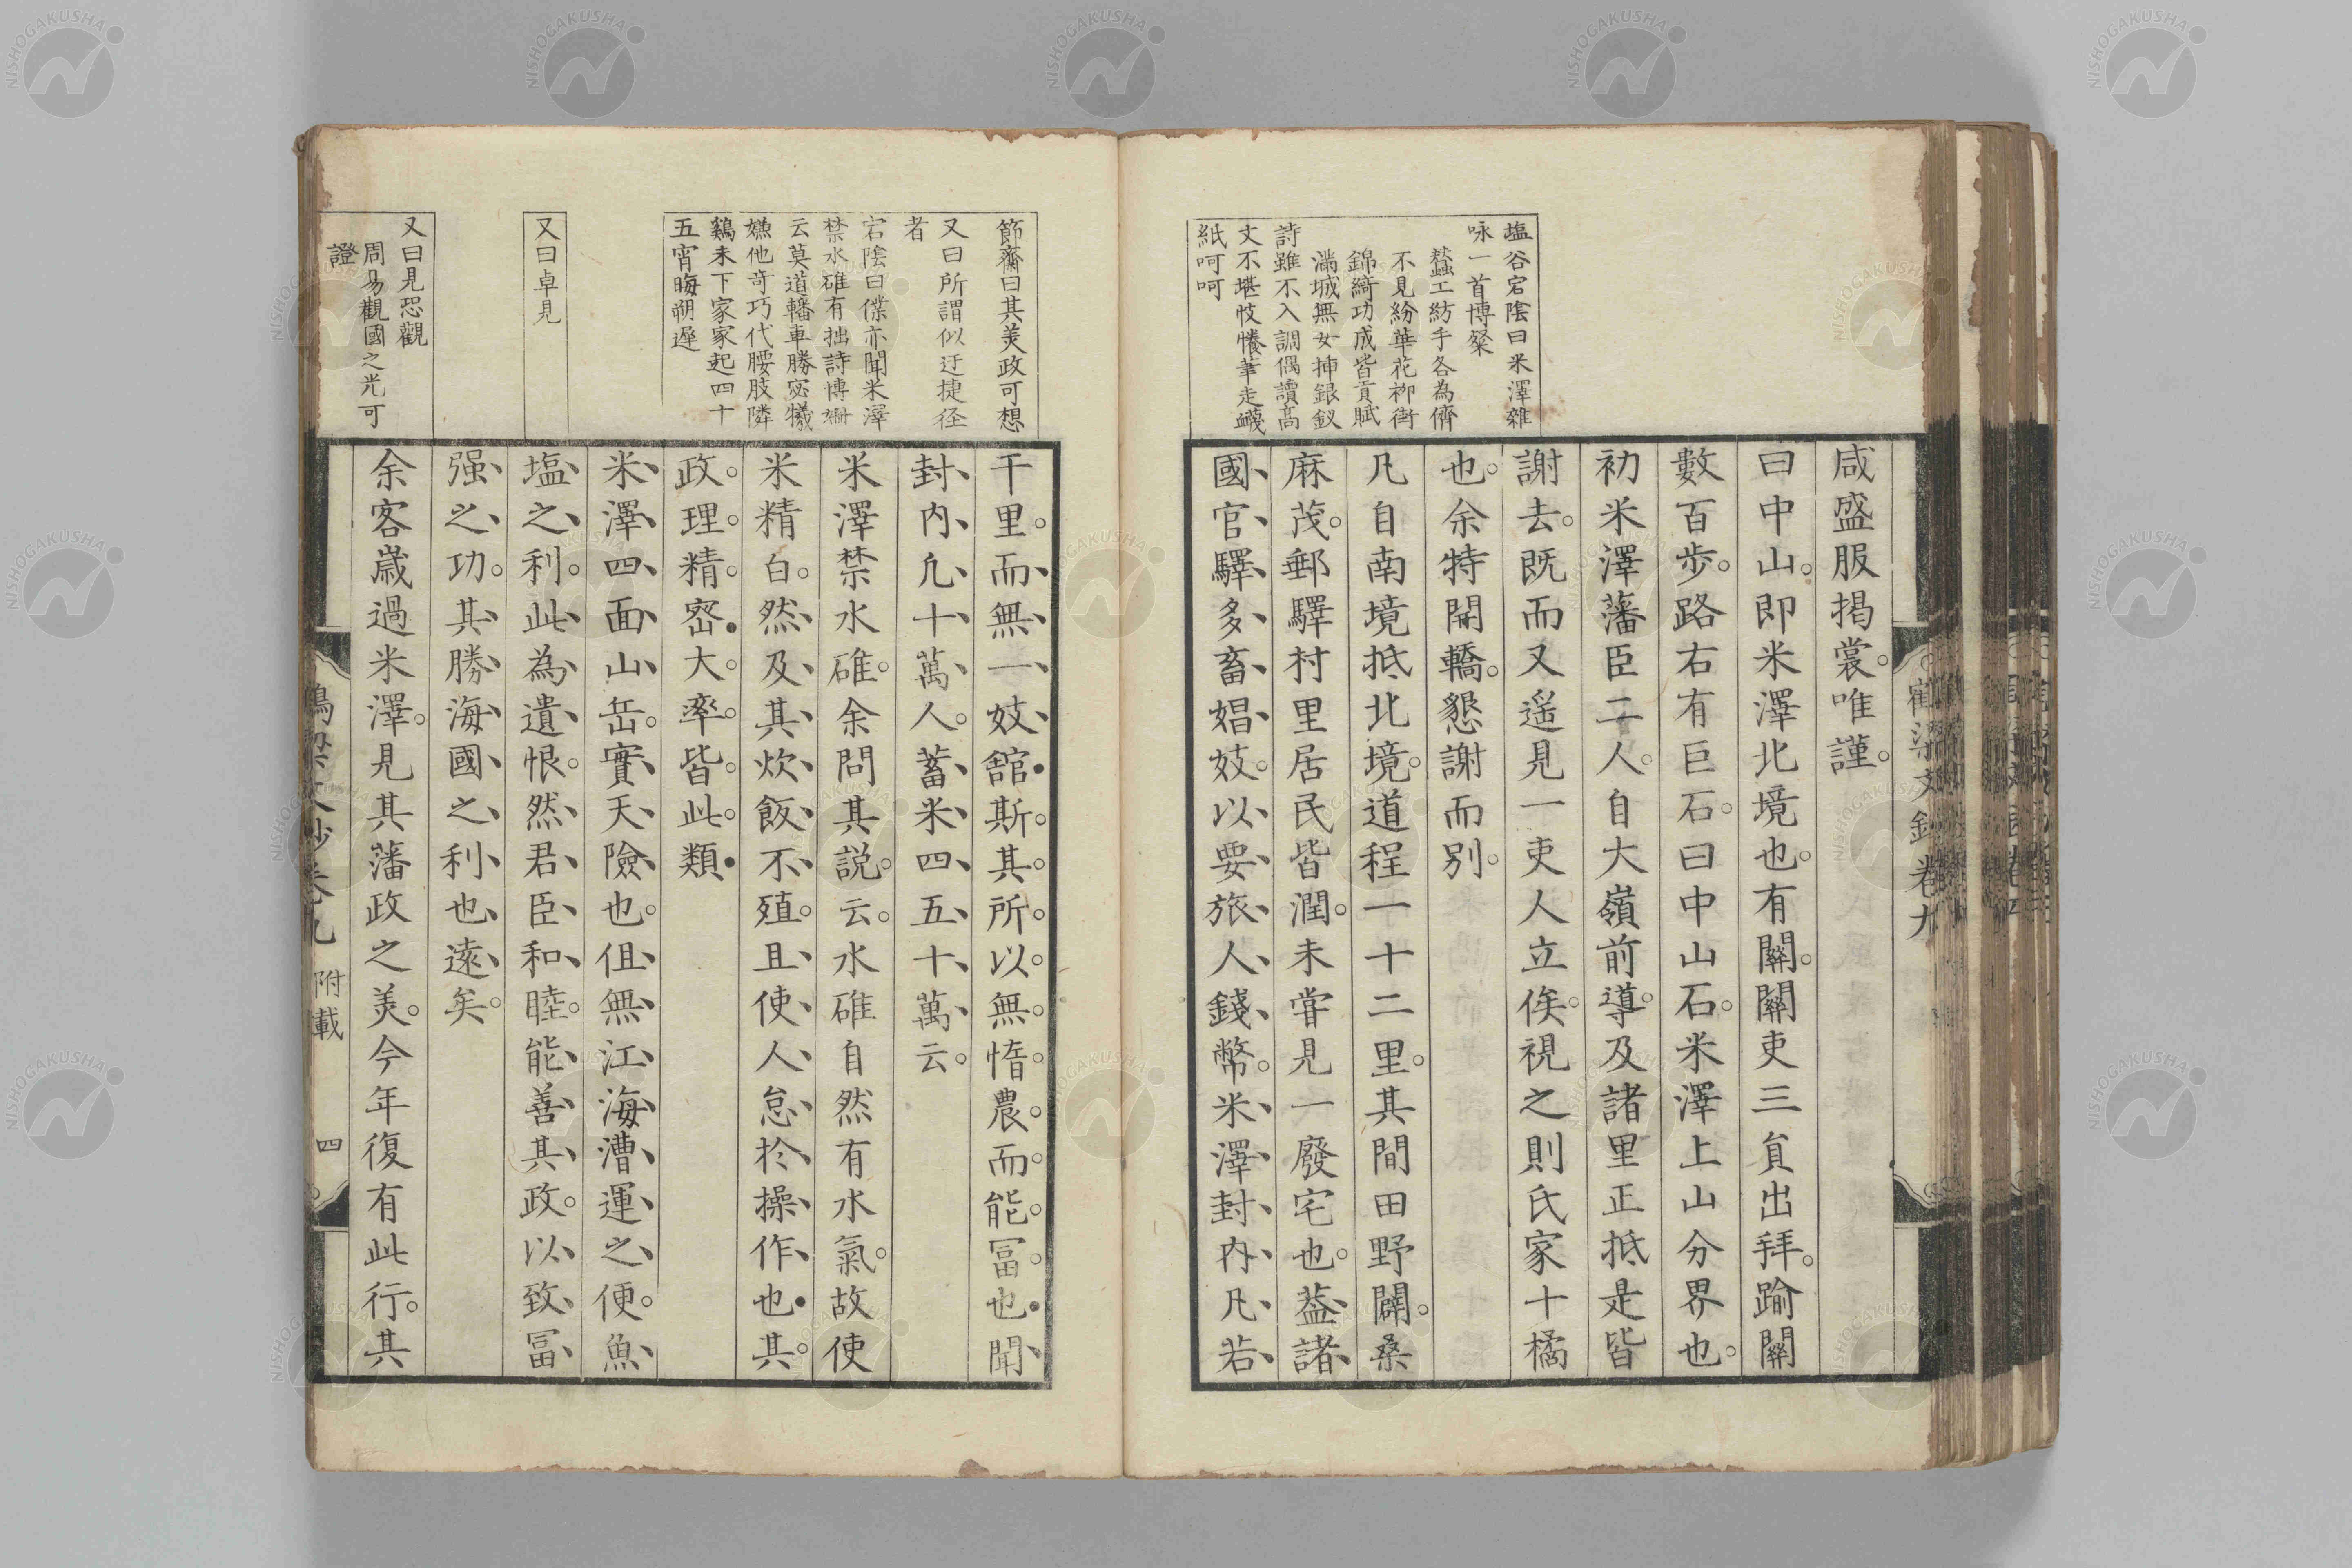 塩谷宕陰曰米澤雜
咏一首博粲
蠶工紡手各為儕
不見紛華花柳街
錦綺功成皆貢賦
滿城無女挿銀釵
詩雖不入調偶讀高
文不堪技懩筆走衊
紙呵呵
咸盛服掲裳。唯謹。
曰中山。即米澤北境也。有關。關吏三員出拜。踰關
數百步。路右有巨石。曰中山石。米澤上山分界也。
初米澤藩臣二人。自大嶺前導。及諸里正抵是皆
謝去。既而又遥見一吏人立俟。視之則氏家十橘
也。余特開轎。懇謝而別。
凡自南境抵北境。道程一十二里。其間田野闢。桑
麻茂。郵驛村里居民皆潤。未甞見一廢宅也。葢諸
國官驛多畜娼妓。以要旅人錢幣。米澤封内凡若
鶴梁文鈔卷九
節齋曰其美政可想
又曰所謂似迂捷径
者
宕陰曰僕亦聞米澤
禁水碓有拙詩博姍
云莫道轓車勝宓犧
嫌他奇巧代腰肢隣
鷄未下家家起四十
五宵晦朔遲
又曰卓見
又曰見恐觀
周易觀國之光可
證
干里。而無一妓舘。斯其所以無惰農。而能冨也。聞
封内凢十萬人。蓄米四五十萬云。
米澤禁水碓。余問其説。云。水碓自然有水氣。故使
米精白。然及其炊飯不殖。且使人怠於操作也。其
政理精密。大率皆此類。
米澤四面山岳。實天險也。但無江海漕運之便。魚
塩之利。此為遺恨。然君臣和睦。能善其政。以致冨
强之功。其勝海國之利也遠矣。
余客歳過米澤。見其藩政之美。今年復有此行。其
鶴梁文鈔卷九 附載 四
NISHOGAKUSHA